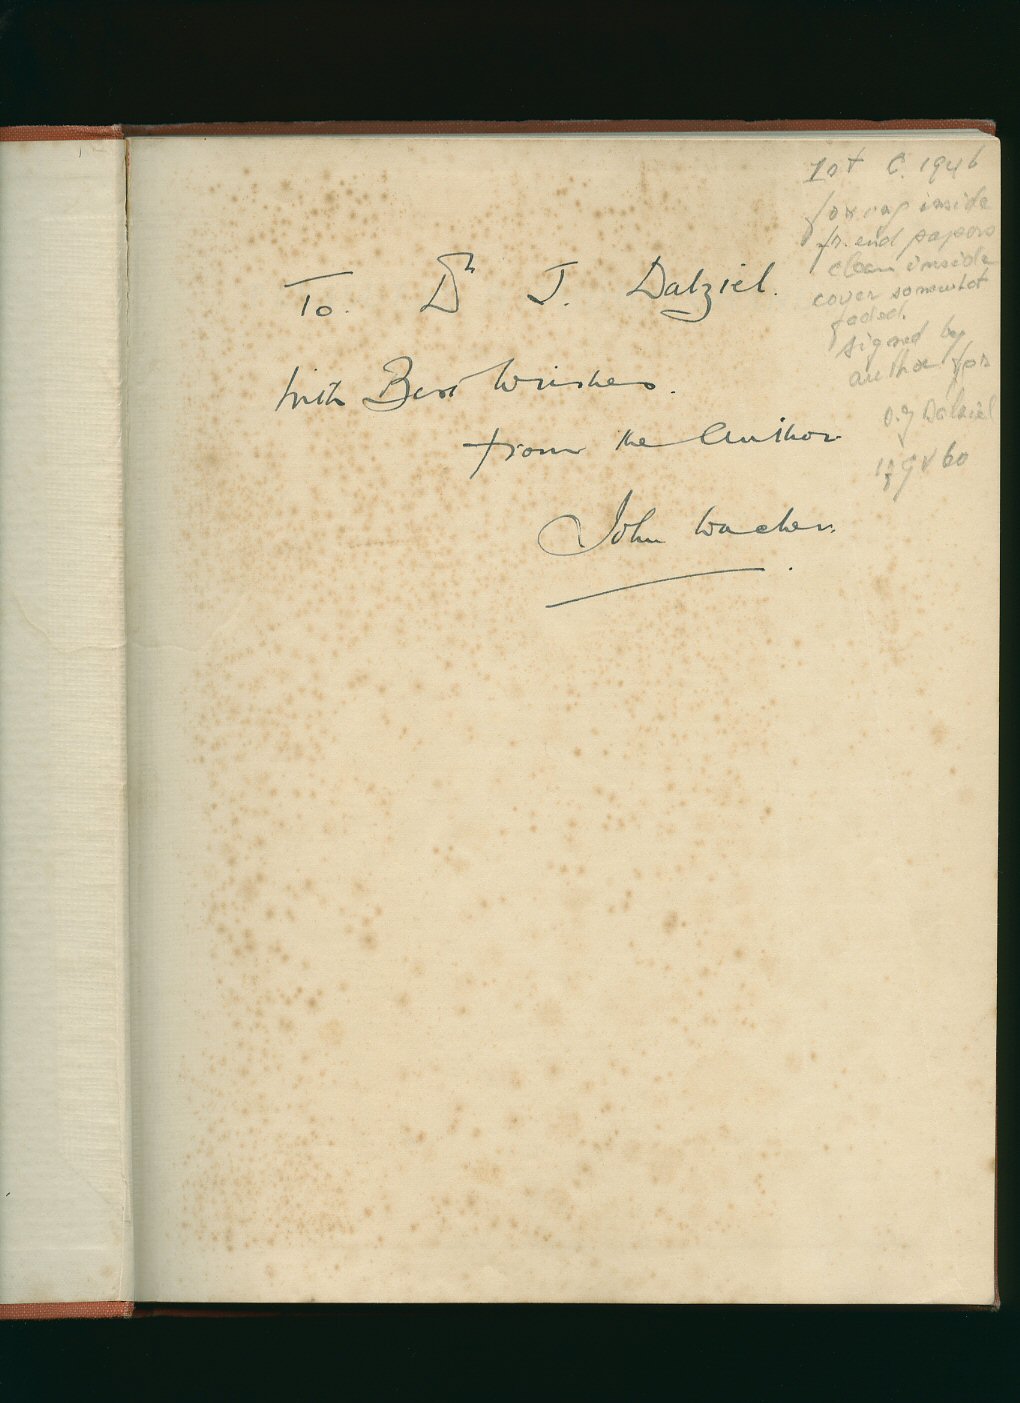 To. Dr J. Dalziel.
With Best Wishes.
from the Author
John
1st C. 1946
foxing inside
fr. end papers
clean inside
cover somewhat
faded.
signed by
author for
D. J Dalziel